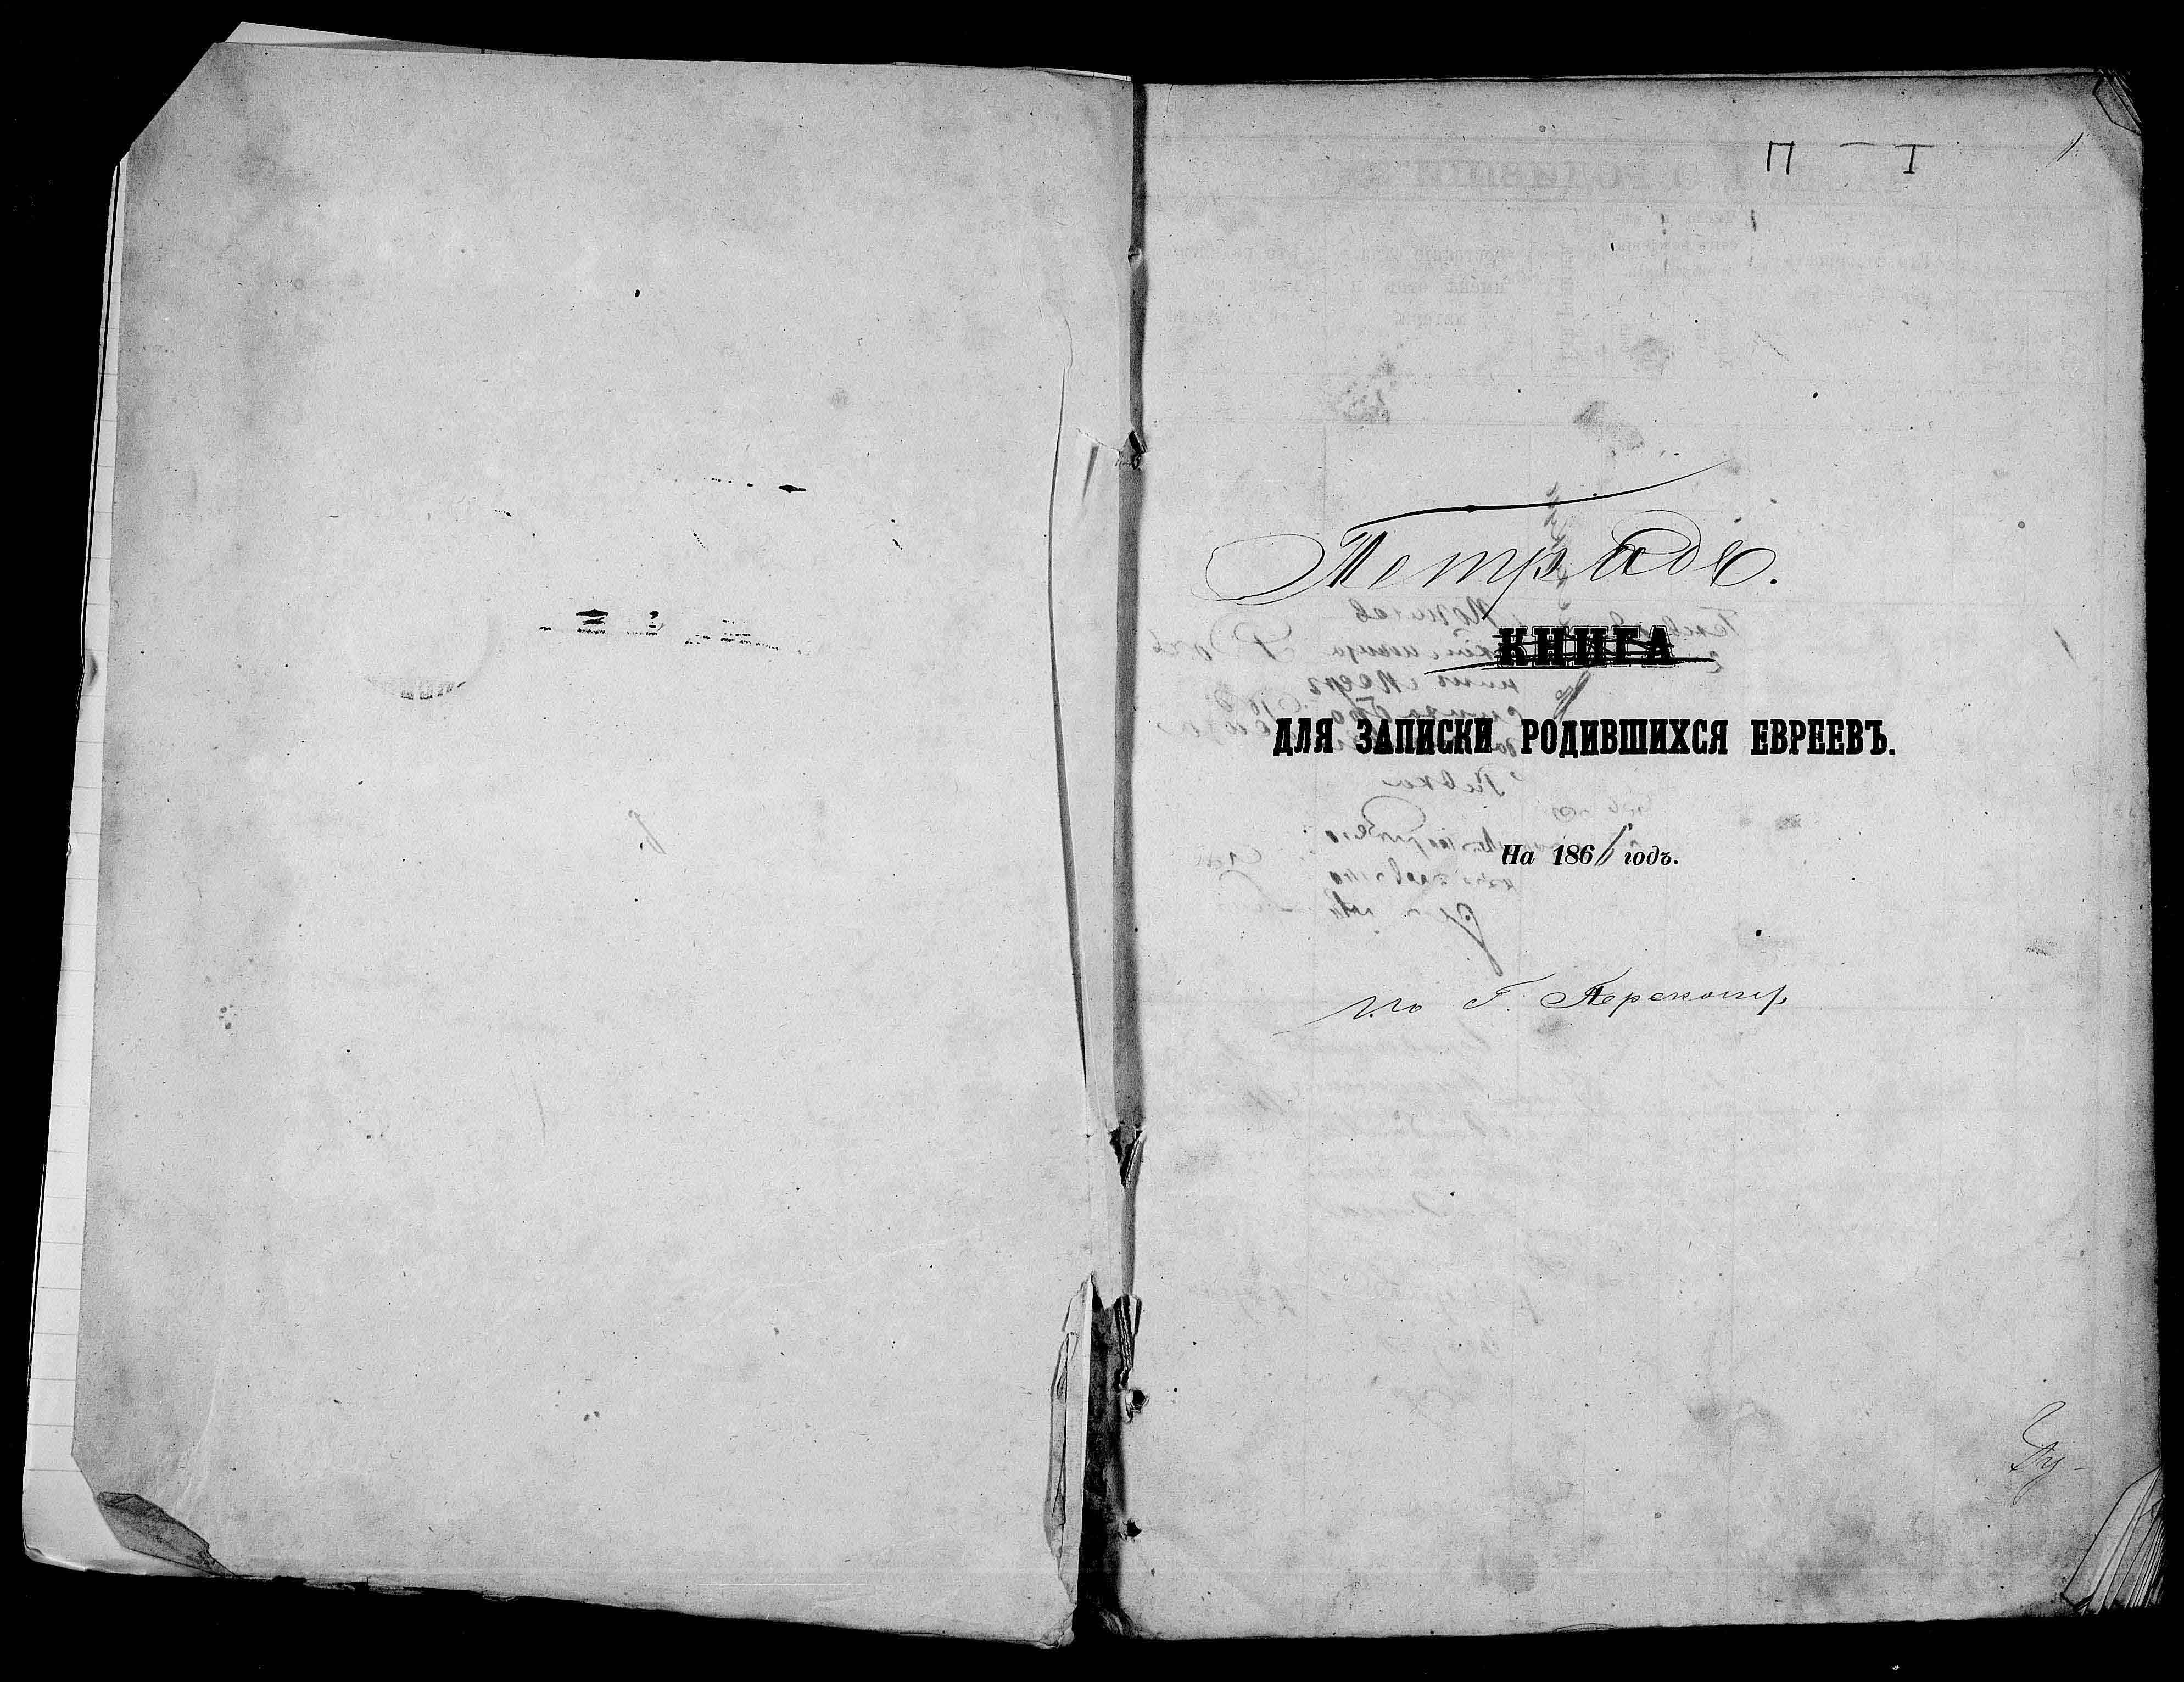 П - I
1.
Тетрадь.
КНИГА
ДЛЯ ЗАПИСКИ РОДИВШИХСЯ ЕВРЕЕВЪ.
На 186 годъ.
по Г. Перекопу